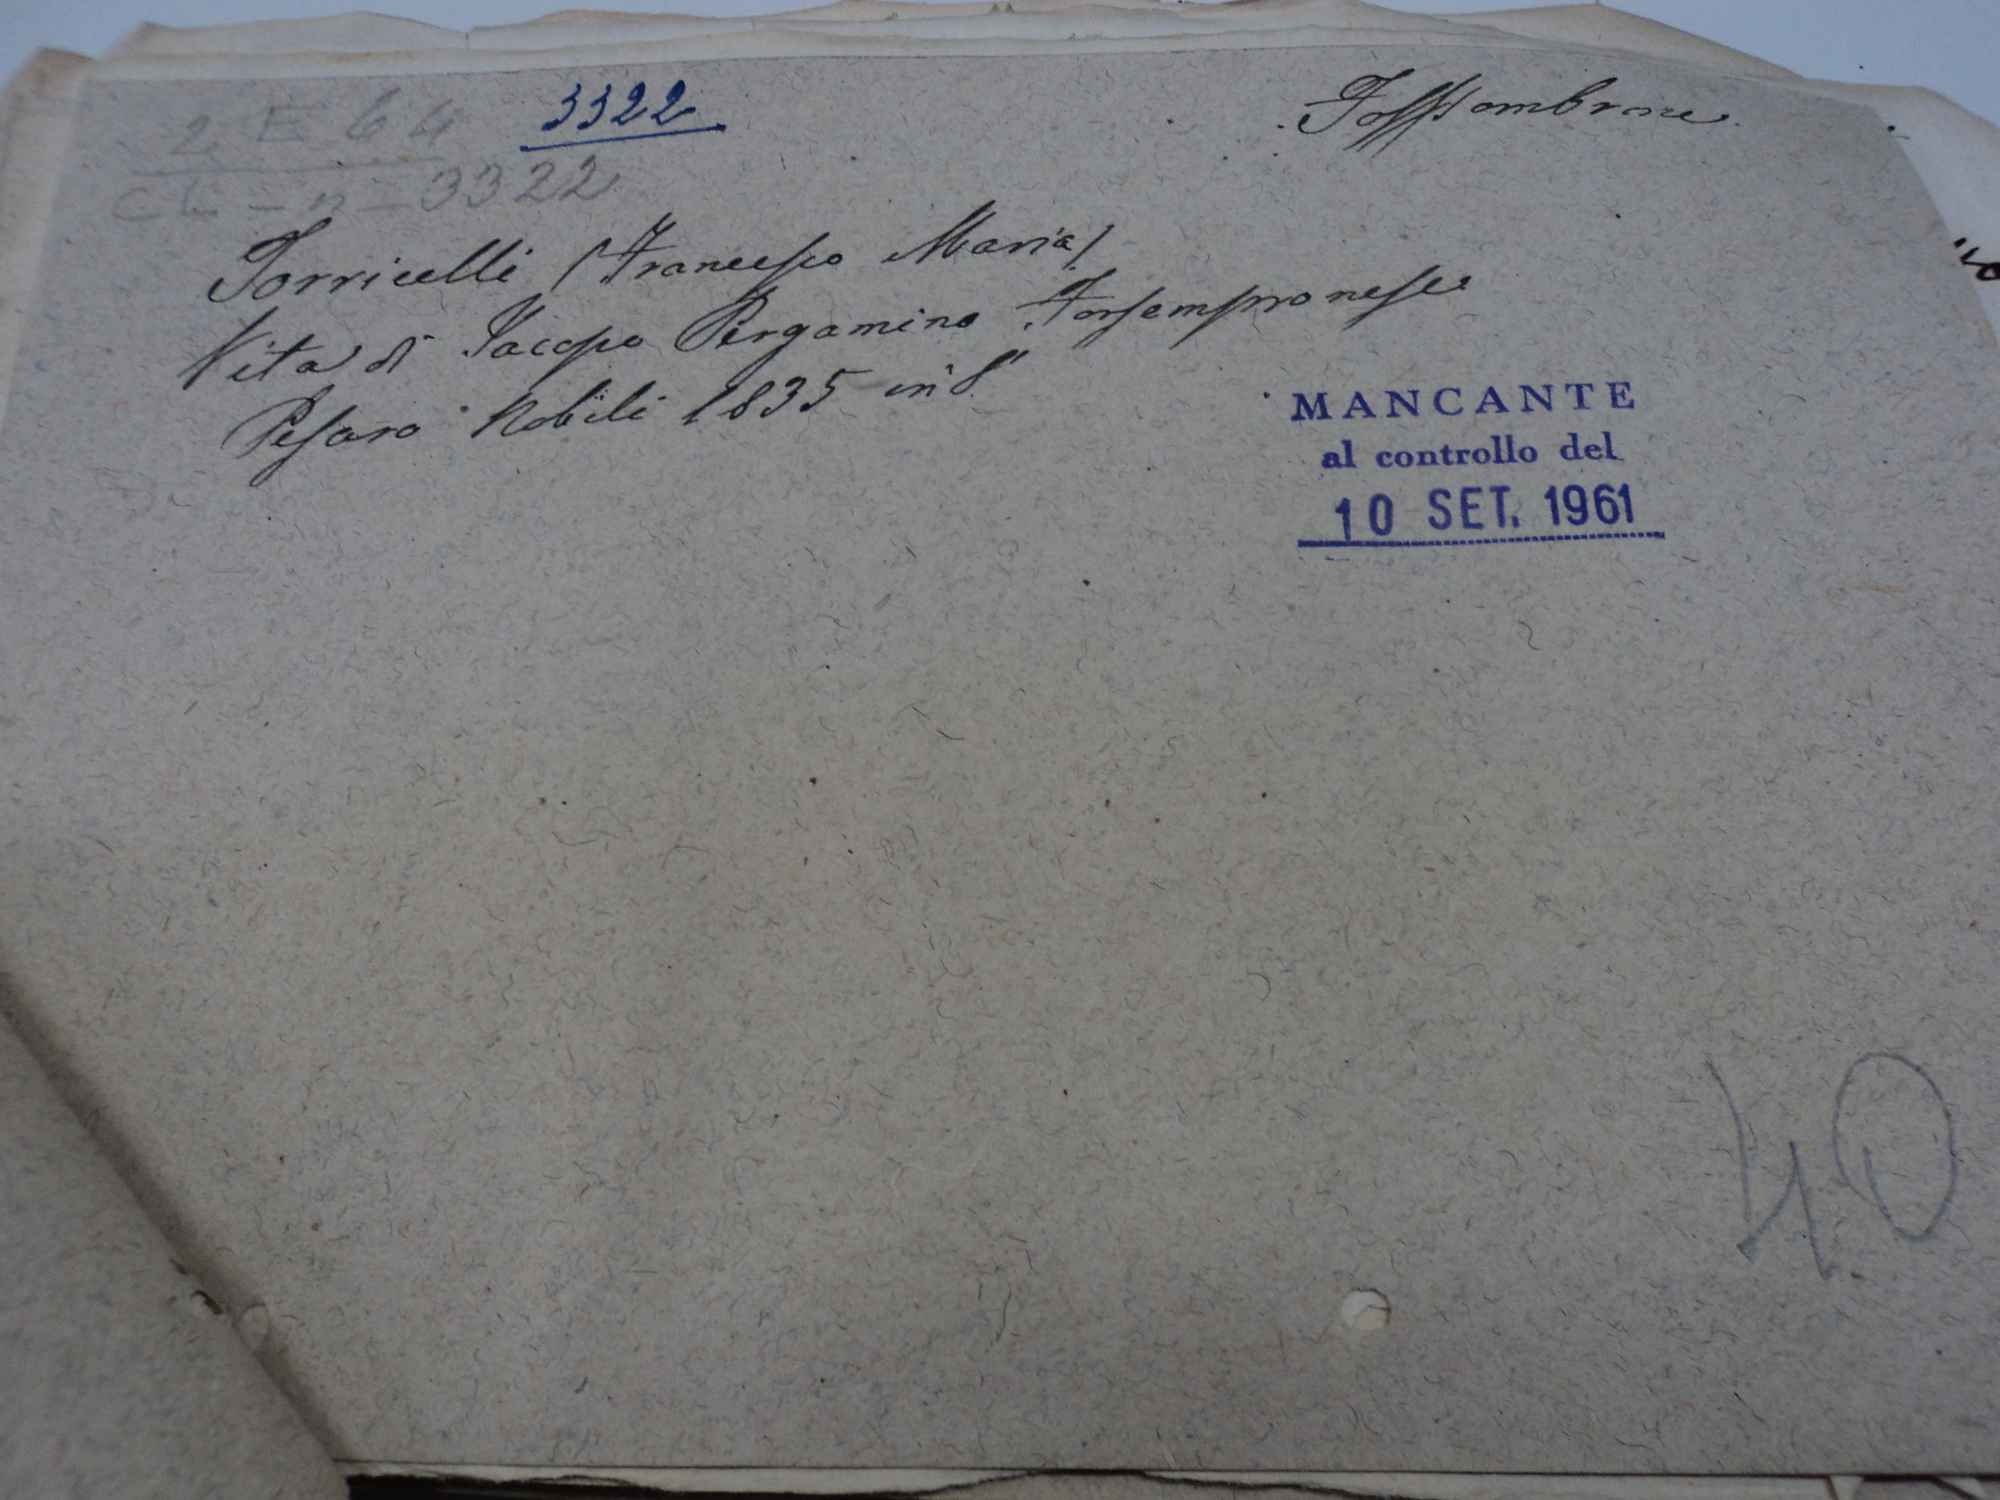 2 E 64
3322
Fossombrone
3322
Torricelli (Francesco Maria)
Vita di Jacopo Pergamino Forsempronese
Pesaro Nobili 1835 in 8°
MANCANTE
al controllo del
10 SET. 1961
40